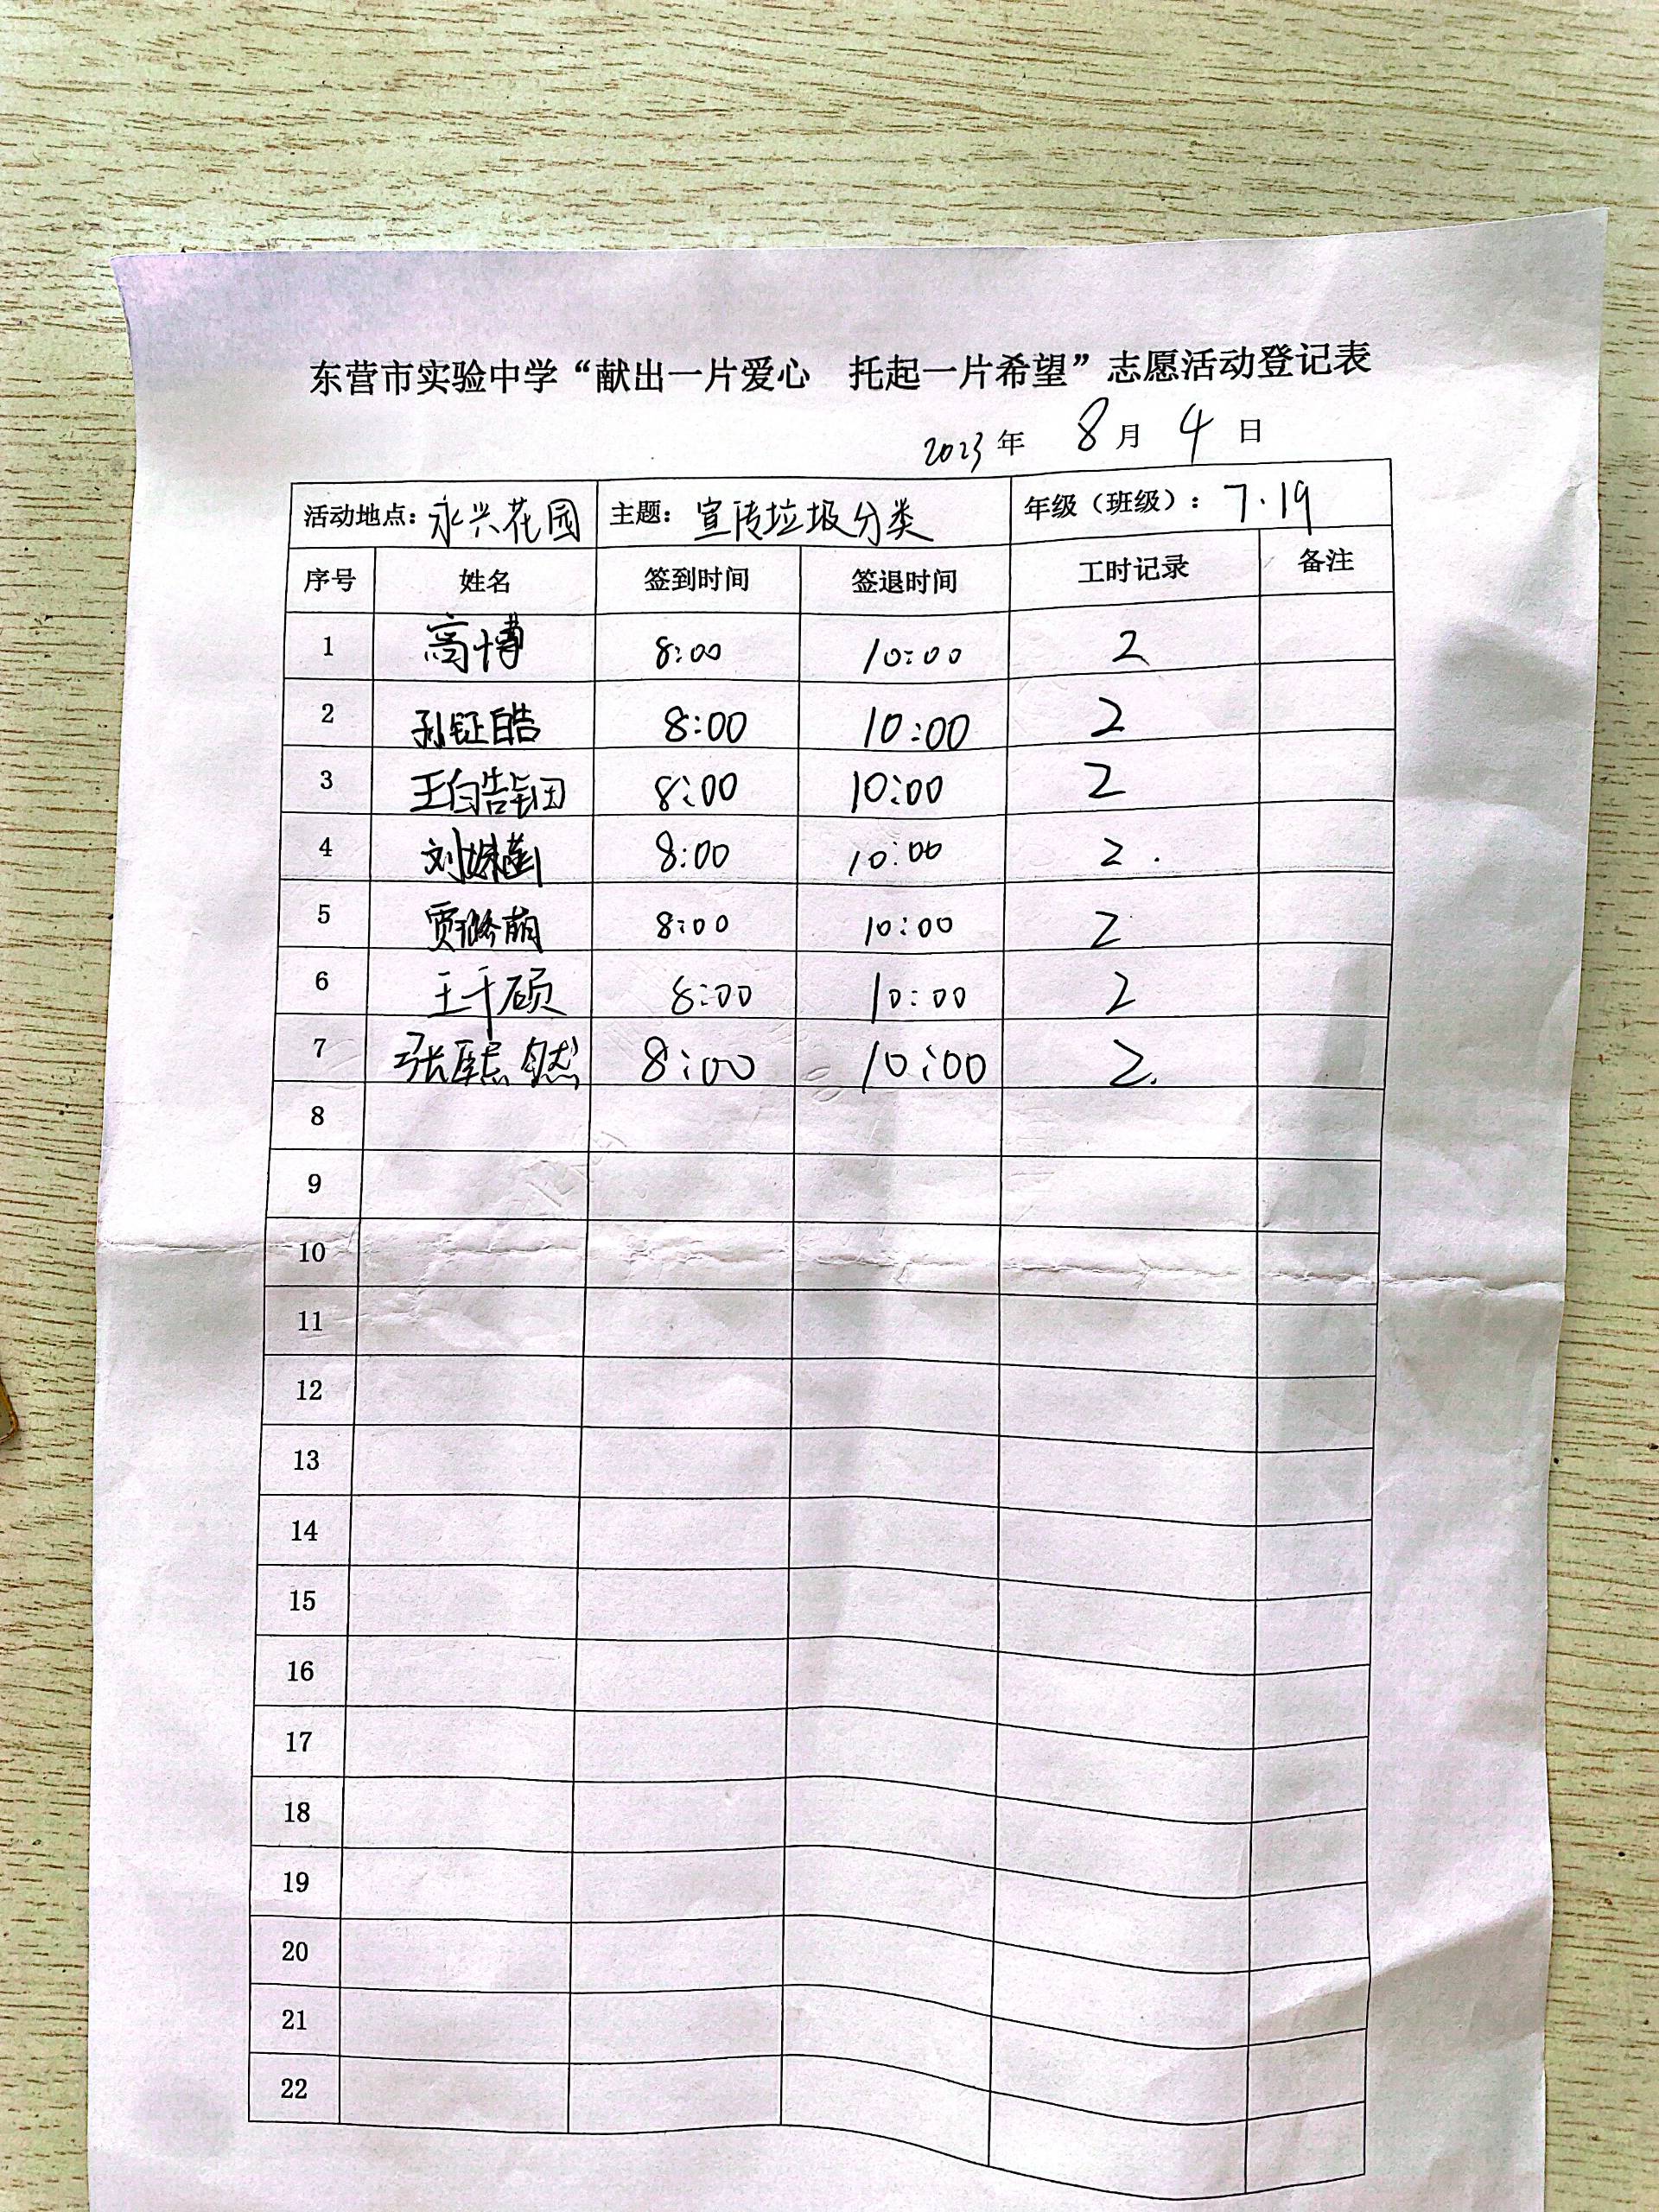 东营市实验中学“献出一片爱心 托起一片希望”志愿活动登记表
2023年 8月 4日
活动地点：永兴花园 主题：宣传垃圾分类 年级（班级）：7.19
序号 姓名 签到时间 签退时间 工时记录 备注
1 高博 8:00 10:00 2
2 孙钲皓 8:00 10:00 2
3 王皓钿 8:00 10:00 2
4 刘姝菡 8:00 10:00 2.
5 贾 萌 8:00 10:00 2
6 王千硕 8:00 10:00 2
7 张熙然 8:00 10:00 2.
8
9
10
11
12
13
14
15
16
17
18
19
20
21
22